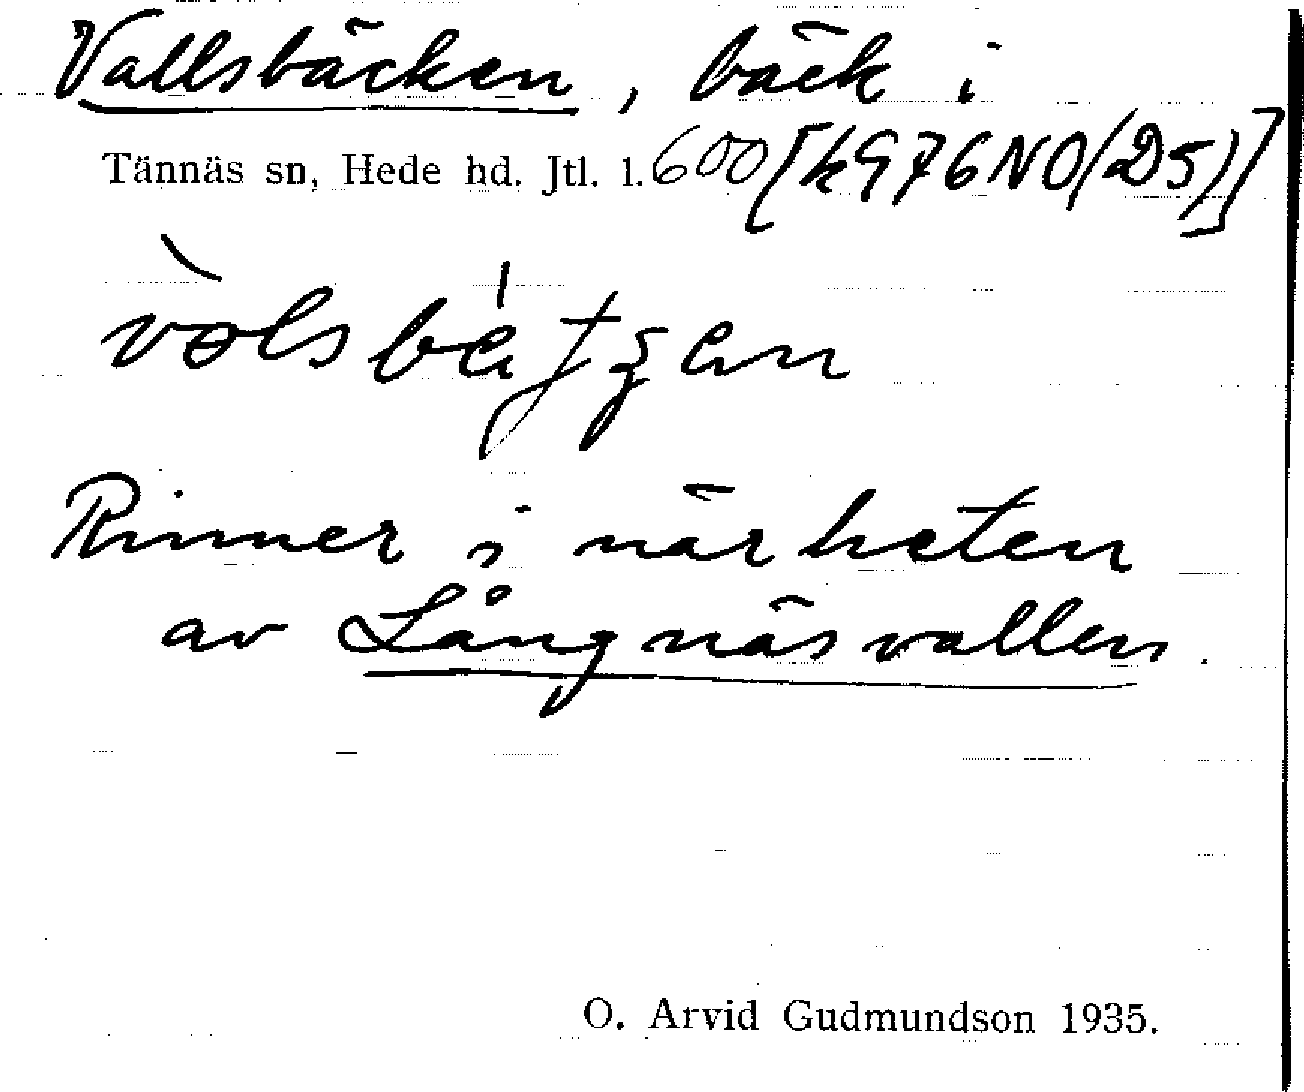 Vallsbäcken, bäck i
Tännäs sn, Hede hd. Jtl. l. 600 [k976NO(D5)]
Rinner i närheten
av Långnäsvallen.
O. Arvid Gudmundson 1935.